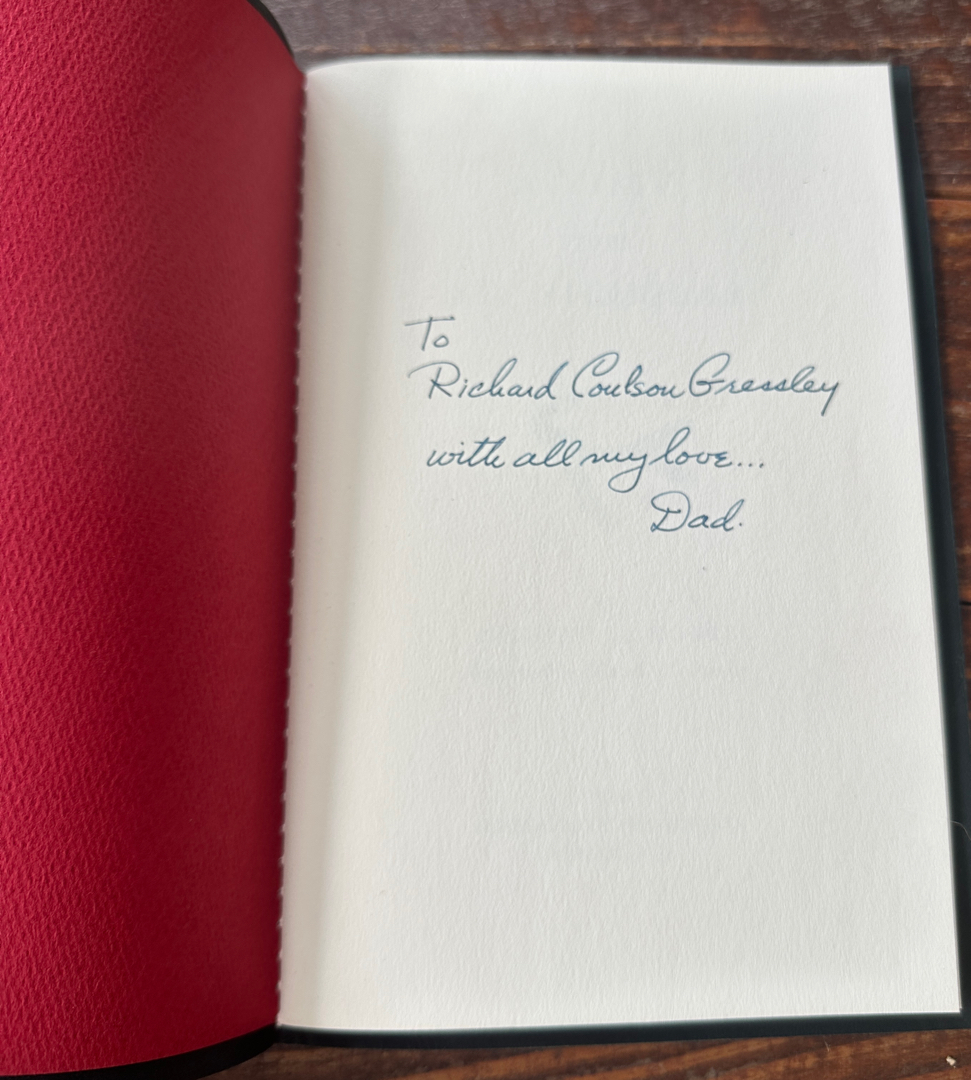 To
Richard Coulson Gressley
with all my love...
Dad.